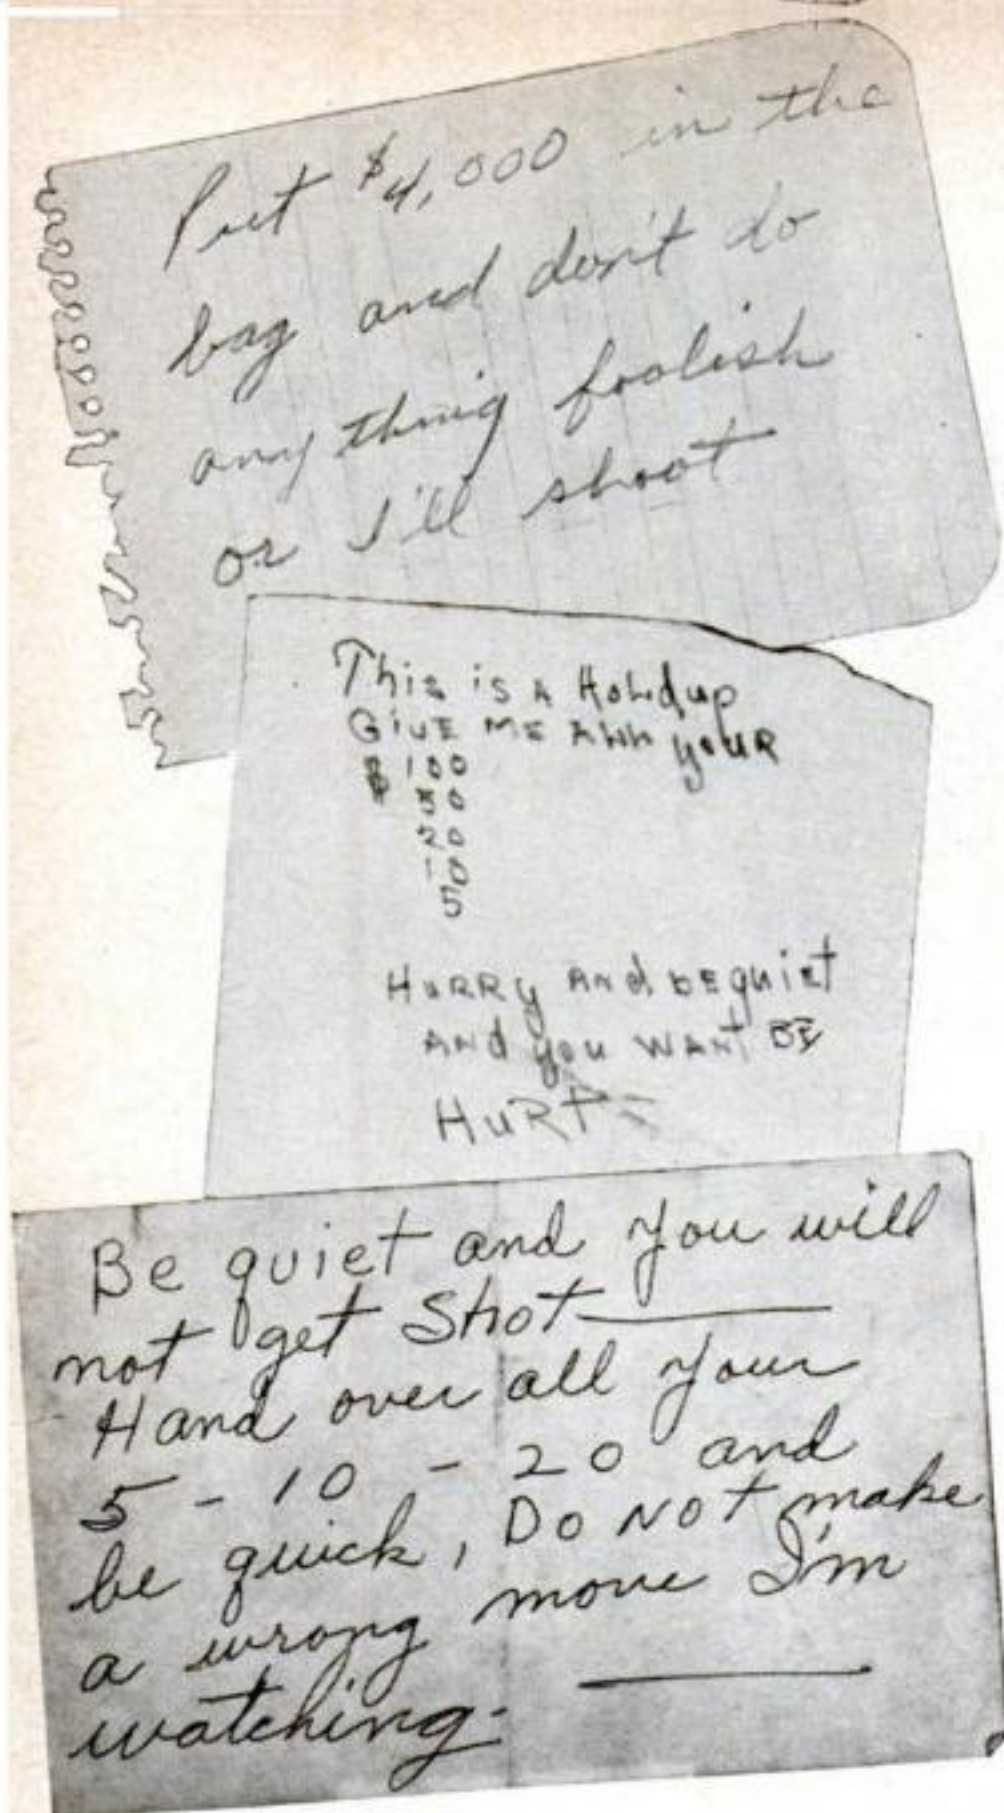 Put $4,000 in the
bag and don't do
any thing foolish
or I'll shoot
This is A Holdup
GIVE ME ALL youR
$ 100
$ 50
20
10
5
HURRy ANd BE quiEt
ANd you WANt BE
HURt
Be quiet and you will
not get Shot
Hand over all your
5 - 10 - 20 and
be quick, Do NOt make
a wrong move I'm
watching.